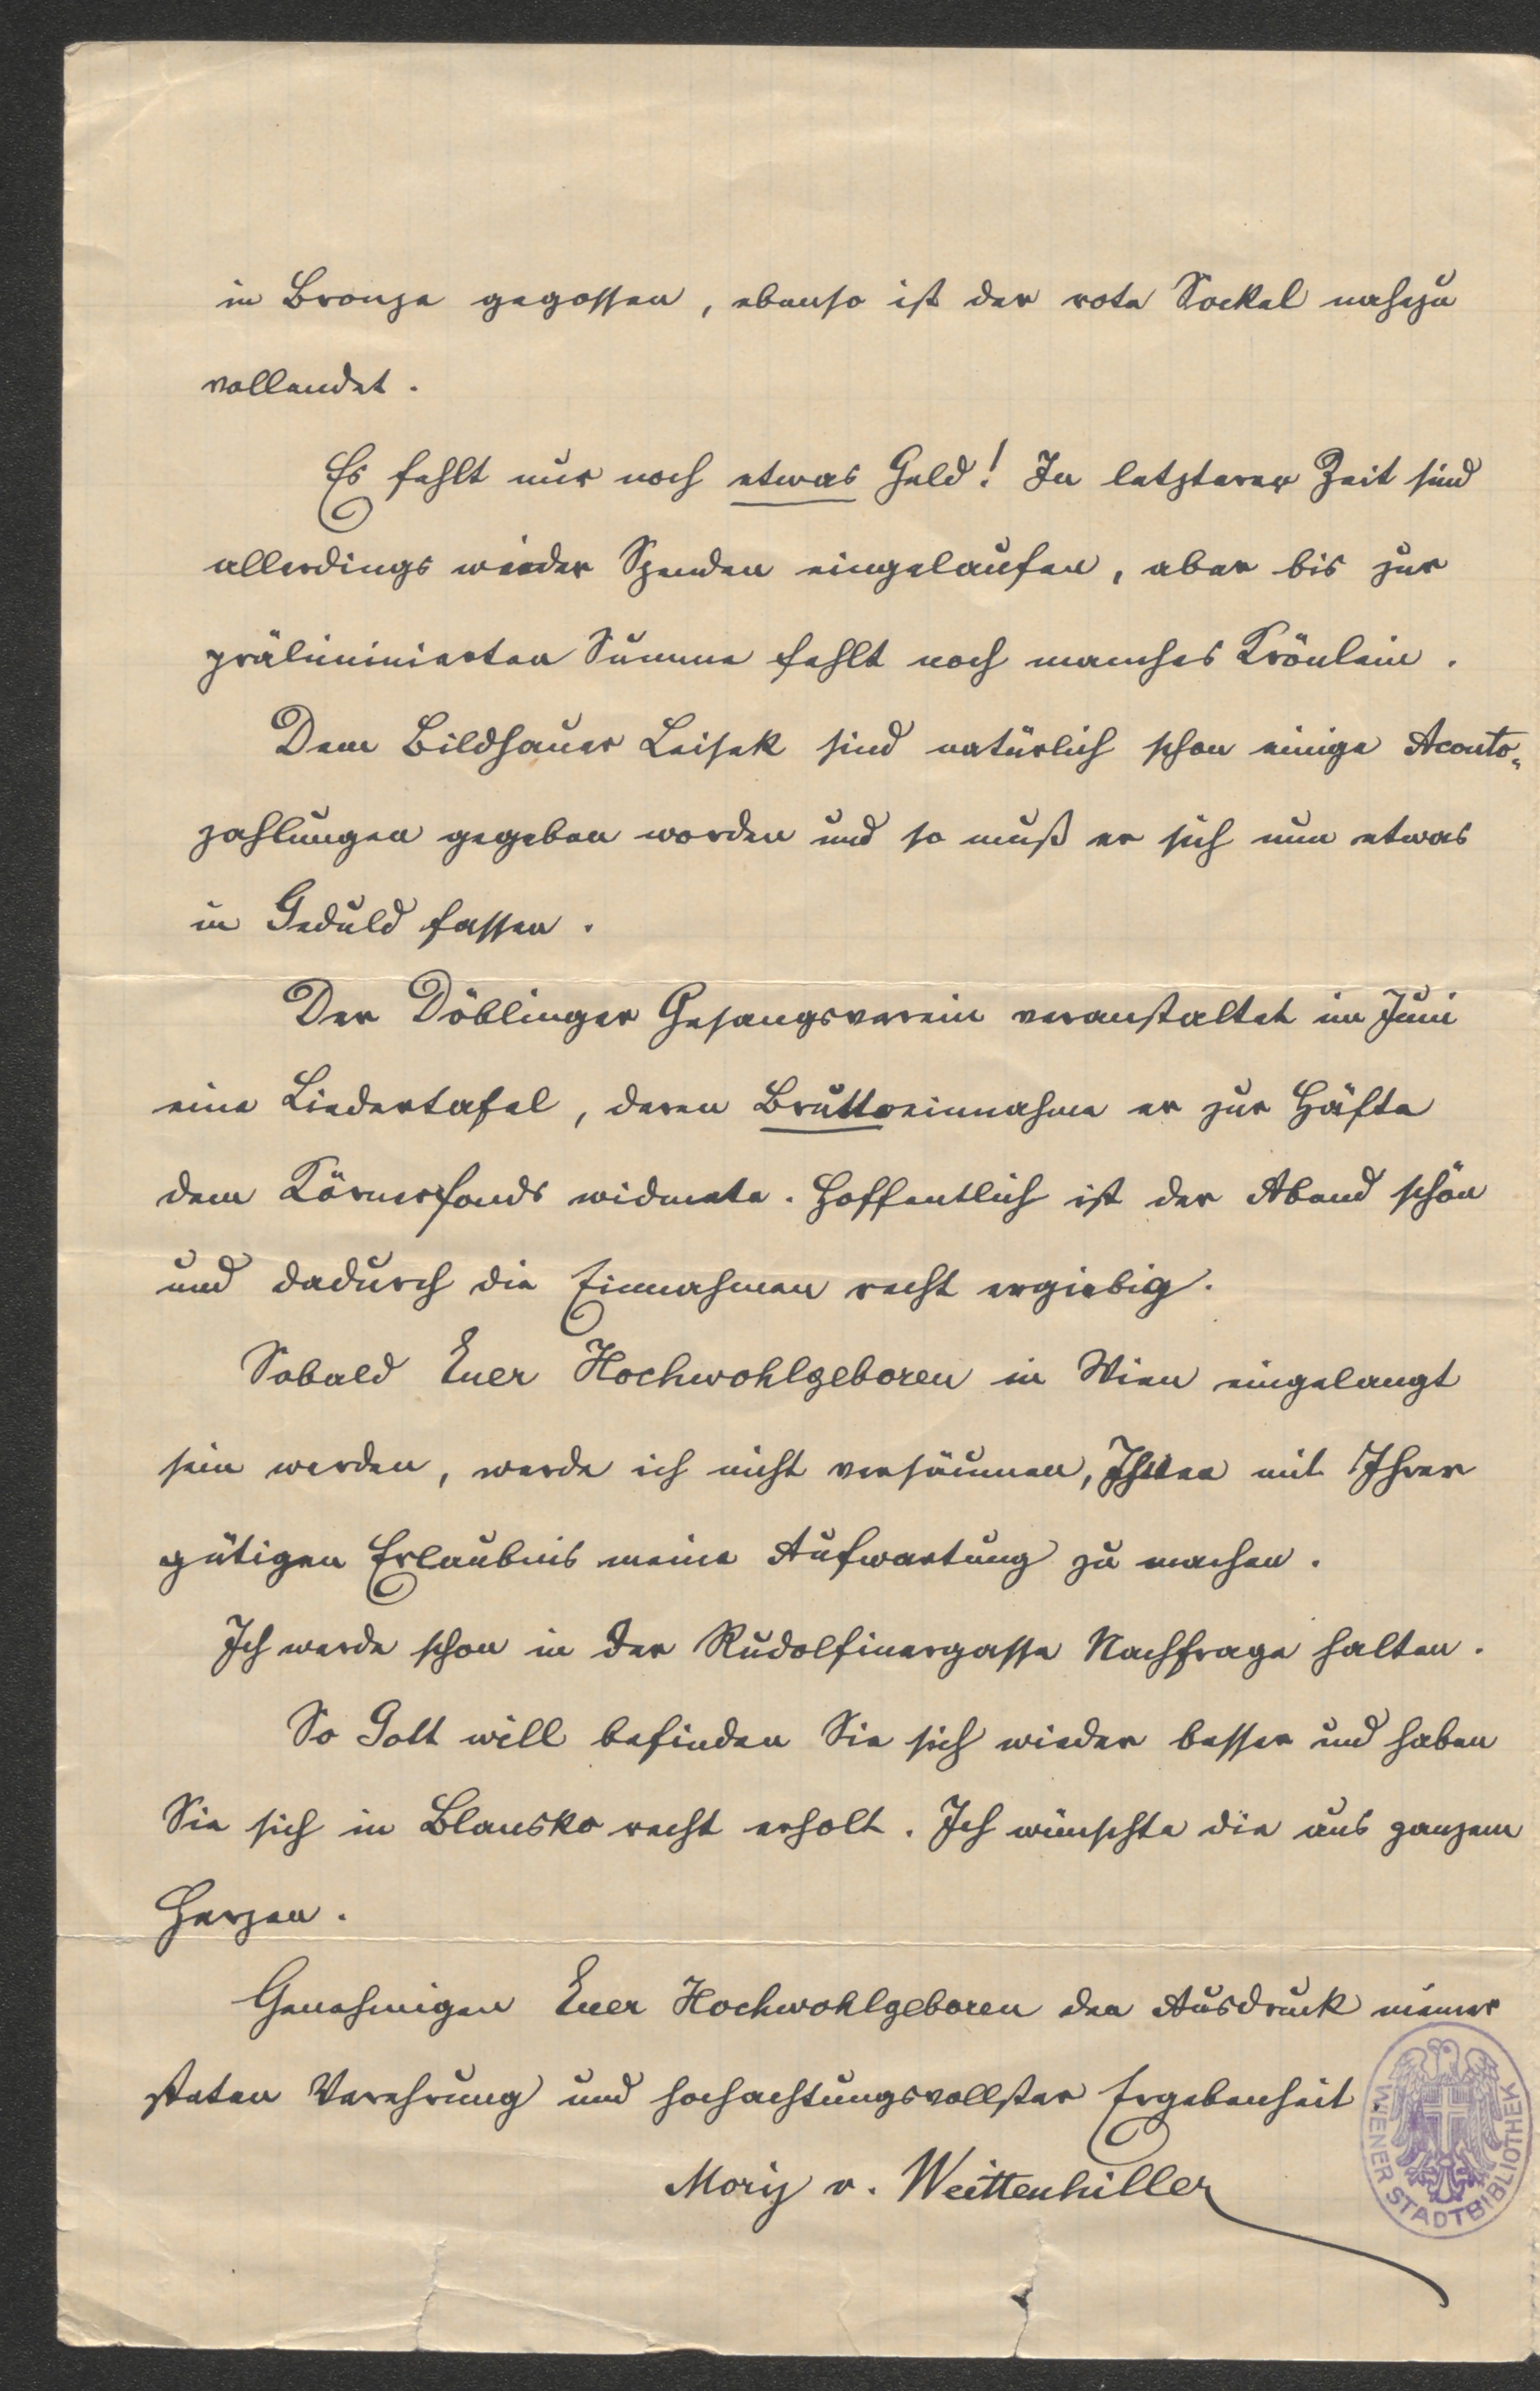 in Bronze gegossen, ebenso ist der rote Sockel nahezu
vollendet.
Es fehlt nur noch etwas Geld! In letzterer Zeit sind
allerdings wieder Spenden eingelaufen, aber bis zur
präliminierten Summe fehlt noch manches Krönlein.
Dem Bildhauer Leisek sind natürlich schon einige Aconto-
zahlungen gegeben worden und so muß er sich nun etwas
in Geduld fassen.
Der Döblinger Gesangsverein veranstaltet im Juni
eine Liedertafel, deren Bruttoeinnahme er zur Häfte
dem Körnerfonds widmete. Hoffentlich ist der Abend schön
und dadurch die Einnahmen recht ergiebig.
Sobald Euer Hochwohlgeboren in Wien eingelangt
sein werden, werde ich nicht versäumen, Ihnen mit Ihrer
gütigen Erlaubnis meine Aufwartung zu machen.
Ich werde schon in der Rudolfinergasse Nachfrage halten.
So Gott will befinden Sie sich wieder besser und haben
Sie sich in Blansko recht erholt. Ich wünschte die aus ganzem
Herzen.
Genehmigen Euer Hochwohlgeboren den Ausdruck meiner
steten Verehrung und hochachtungsvollster Ergebenheit.
Moriz v. Weittenhiller
WIENER STADTBIBLIOTHEK